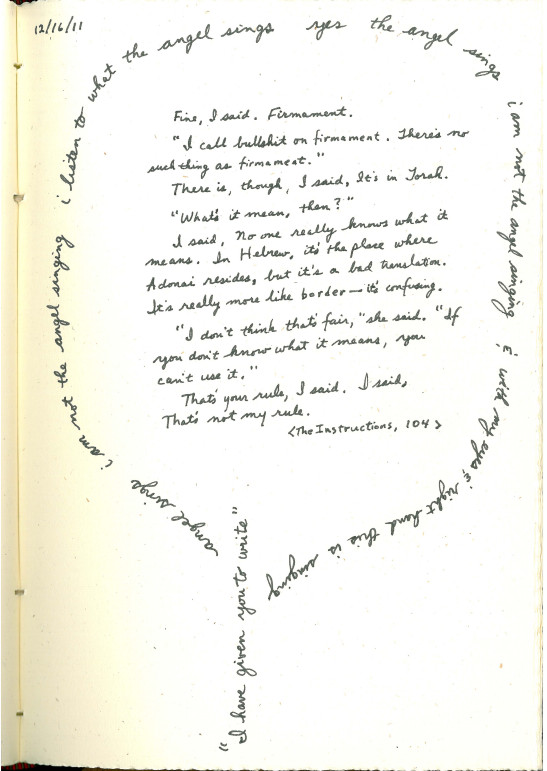 12/16/11
angel sings i am not the angel singing i listen to what the angel sings yes the angel sings i am not the angel singing & with my eyes & right hand this is singing
Fine, I said. Firmament.
"I call bullshit on firmament. There's no
such thing as firmament."
There is, though, I said, It's in Torah.
"What's it mean, then?"
I said, No one really knows what it
means. In Hebrew, it's the place where
Adonai resides, but it's a bad translation.
It's really more like border—it's confusing.
"I don't think that's fair," she said. "If
you don't know what it means, you
can't use it."
That's your rule, I said. I said,
That's not my rule.
<The Instructions, 104>
"I have given you to write"